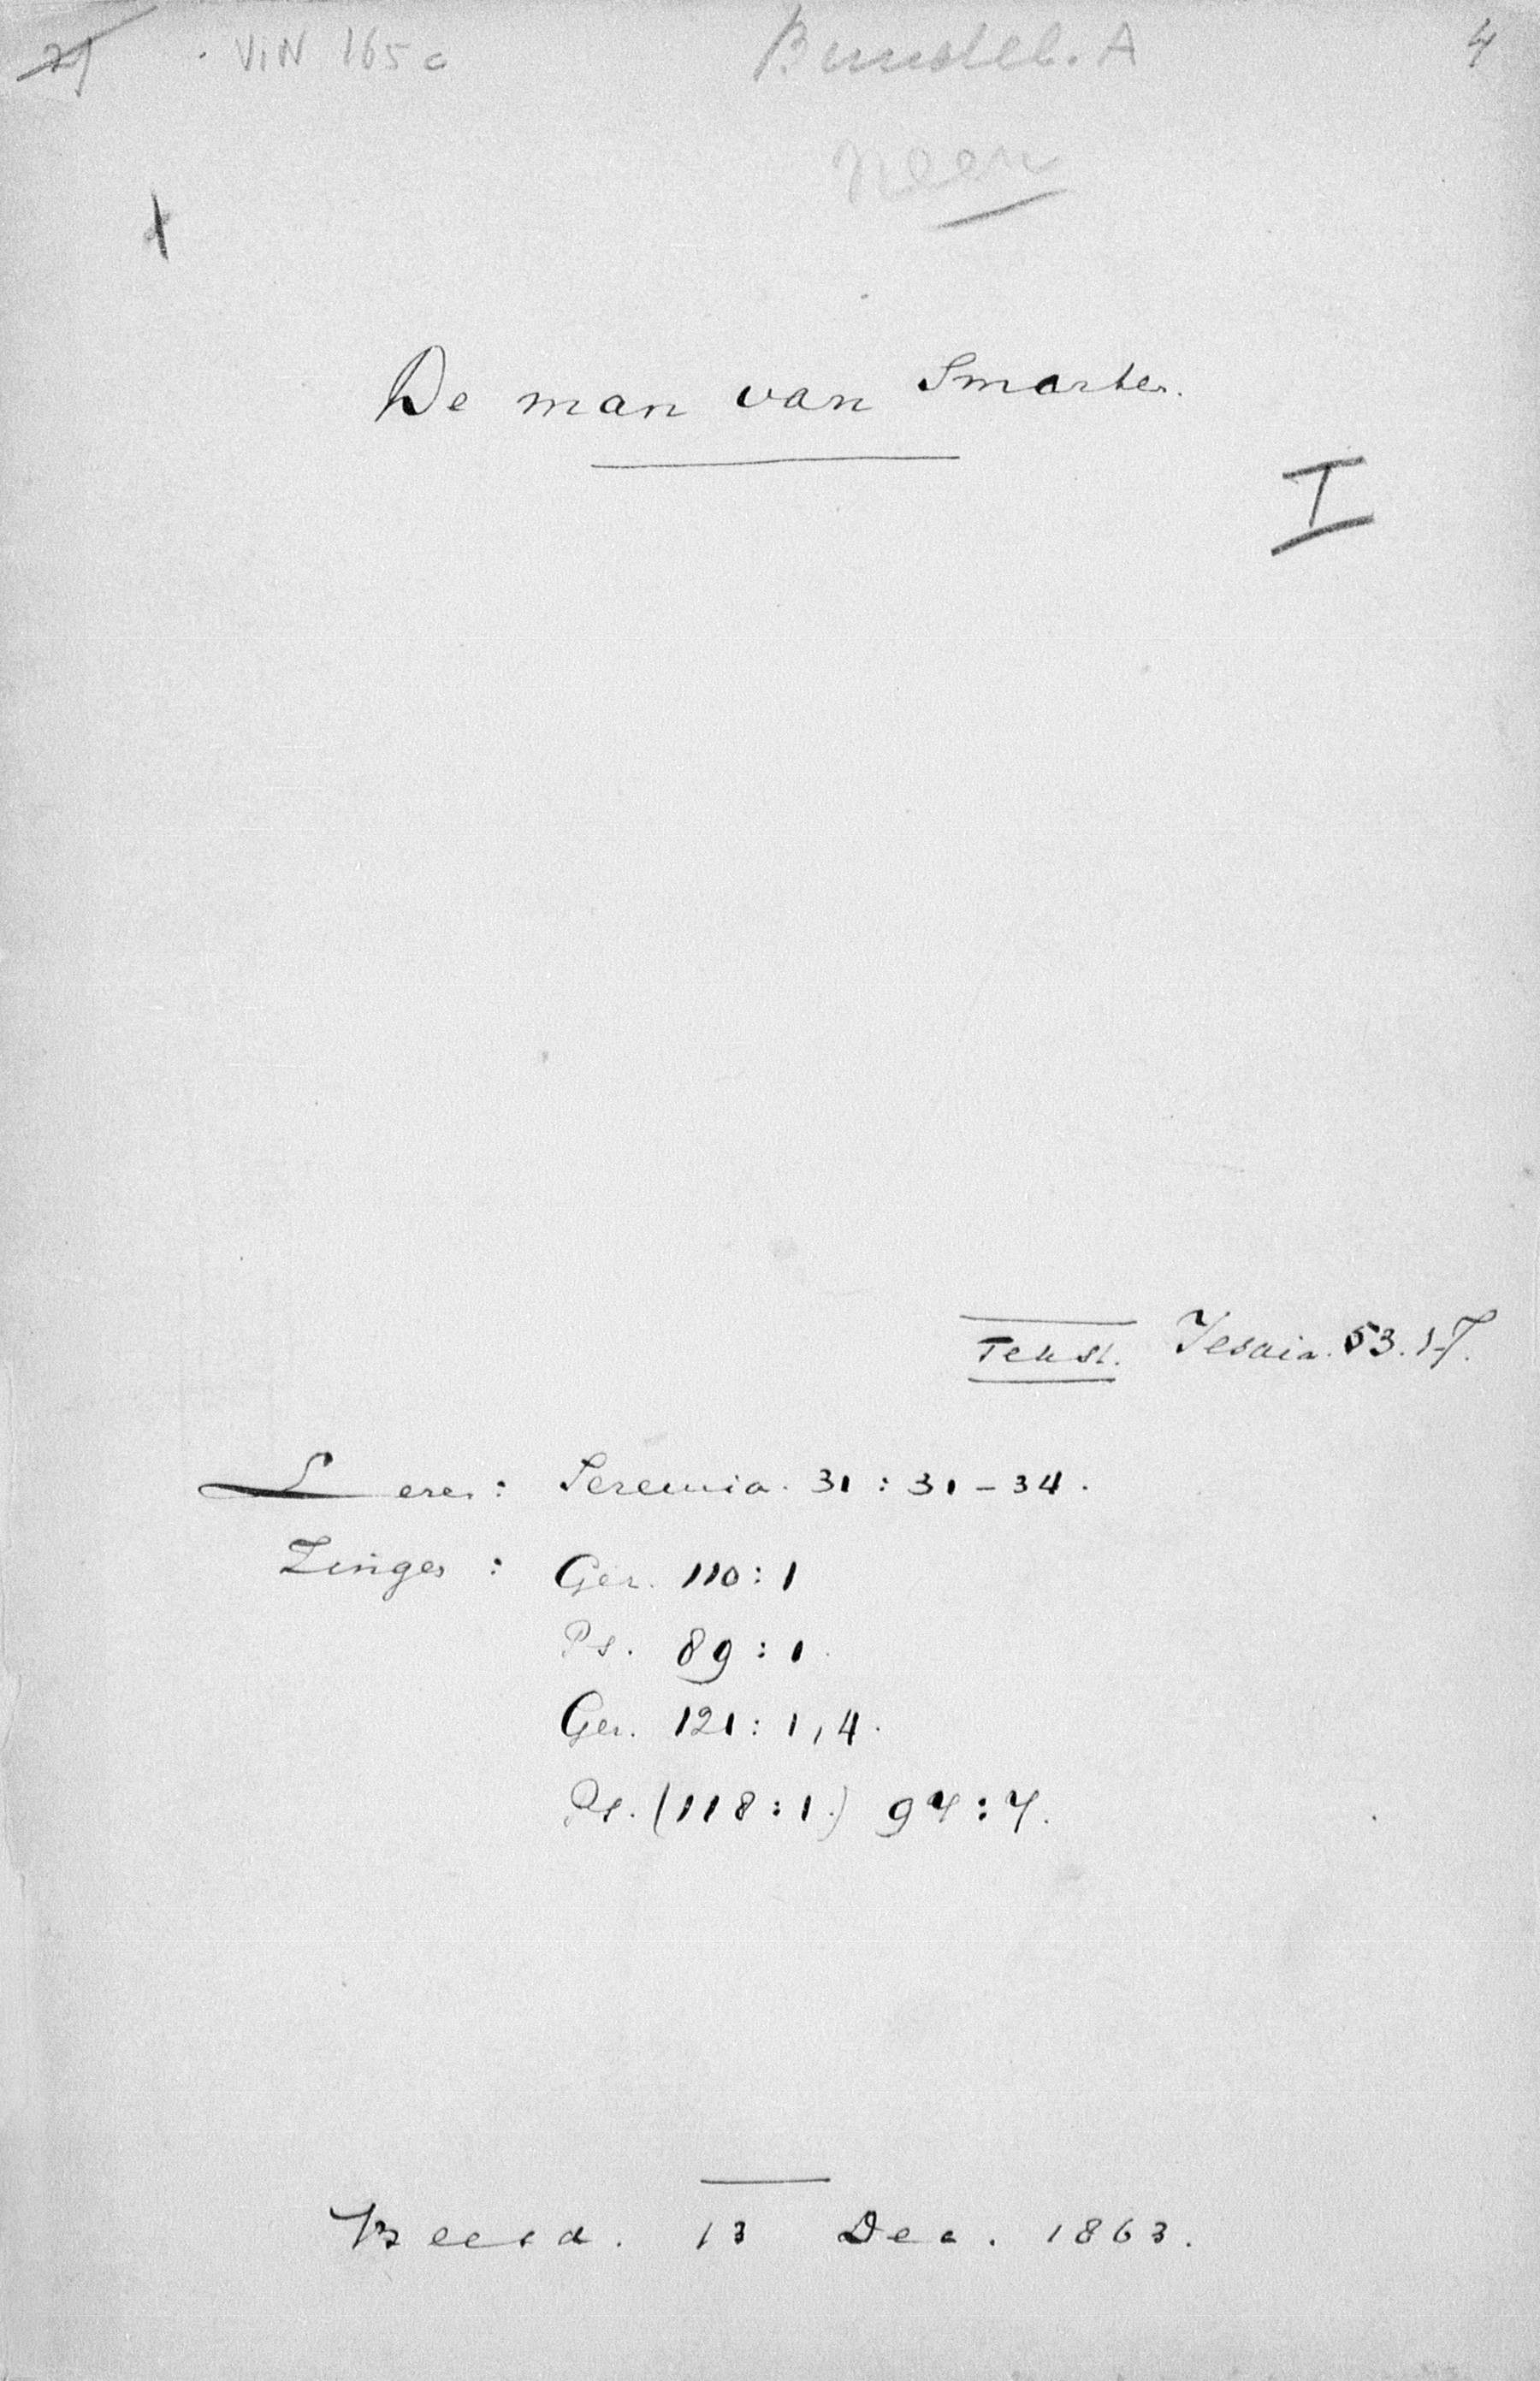 VIN 165c Bundel. A 4
neen
De man van Smarten.
I
Tekst. Jesaia. 53. 1-7.
Lezen: Jeremia. 31 : 31 – 34.
Zingen : Gez. 110 : 1
Ps. 89 : 1.
Gez. 121 : 1, 4.
Ps. (118 : 1.) 97 : 7.
Beesd. 13 Dec. 1863.